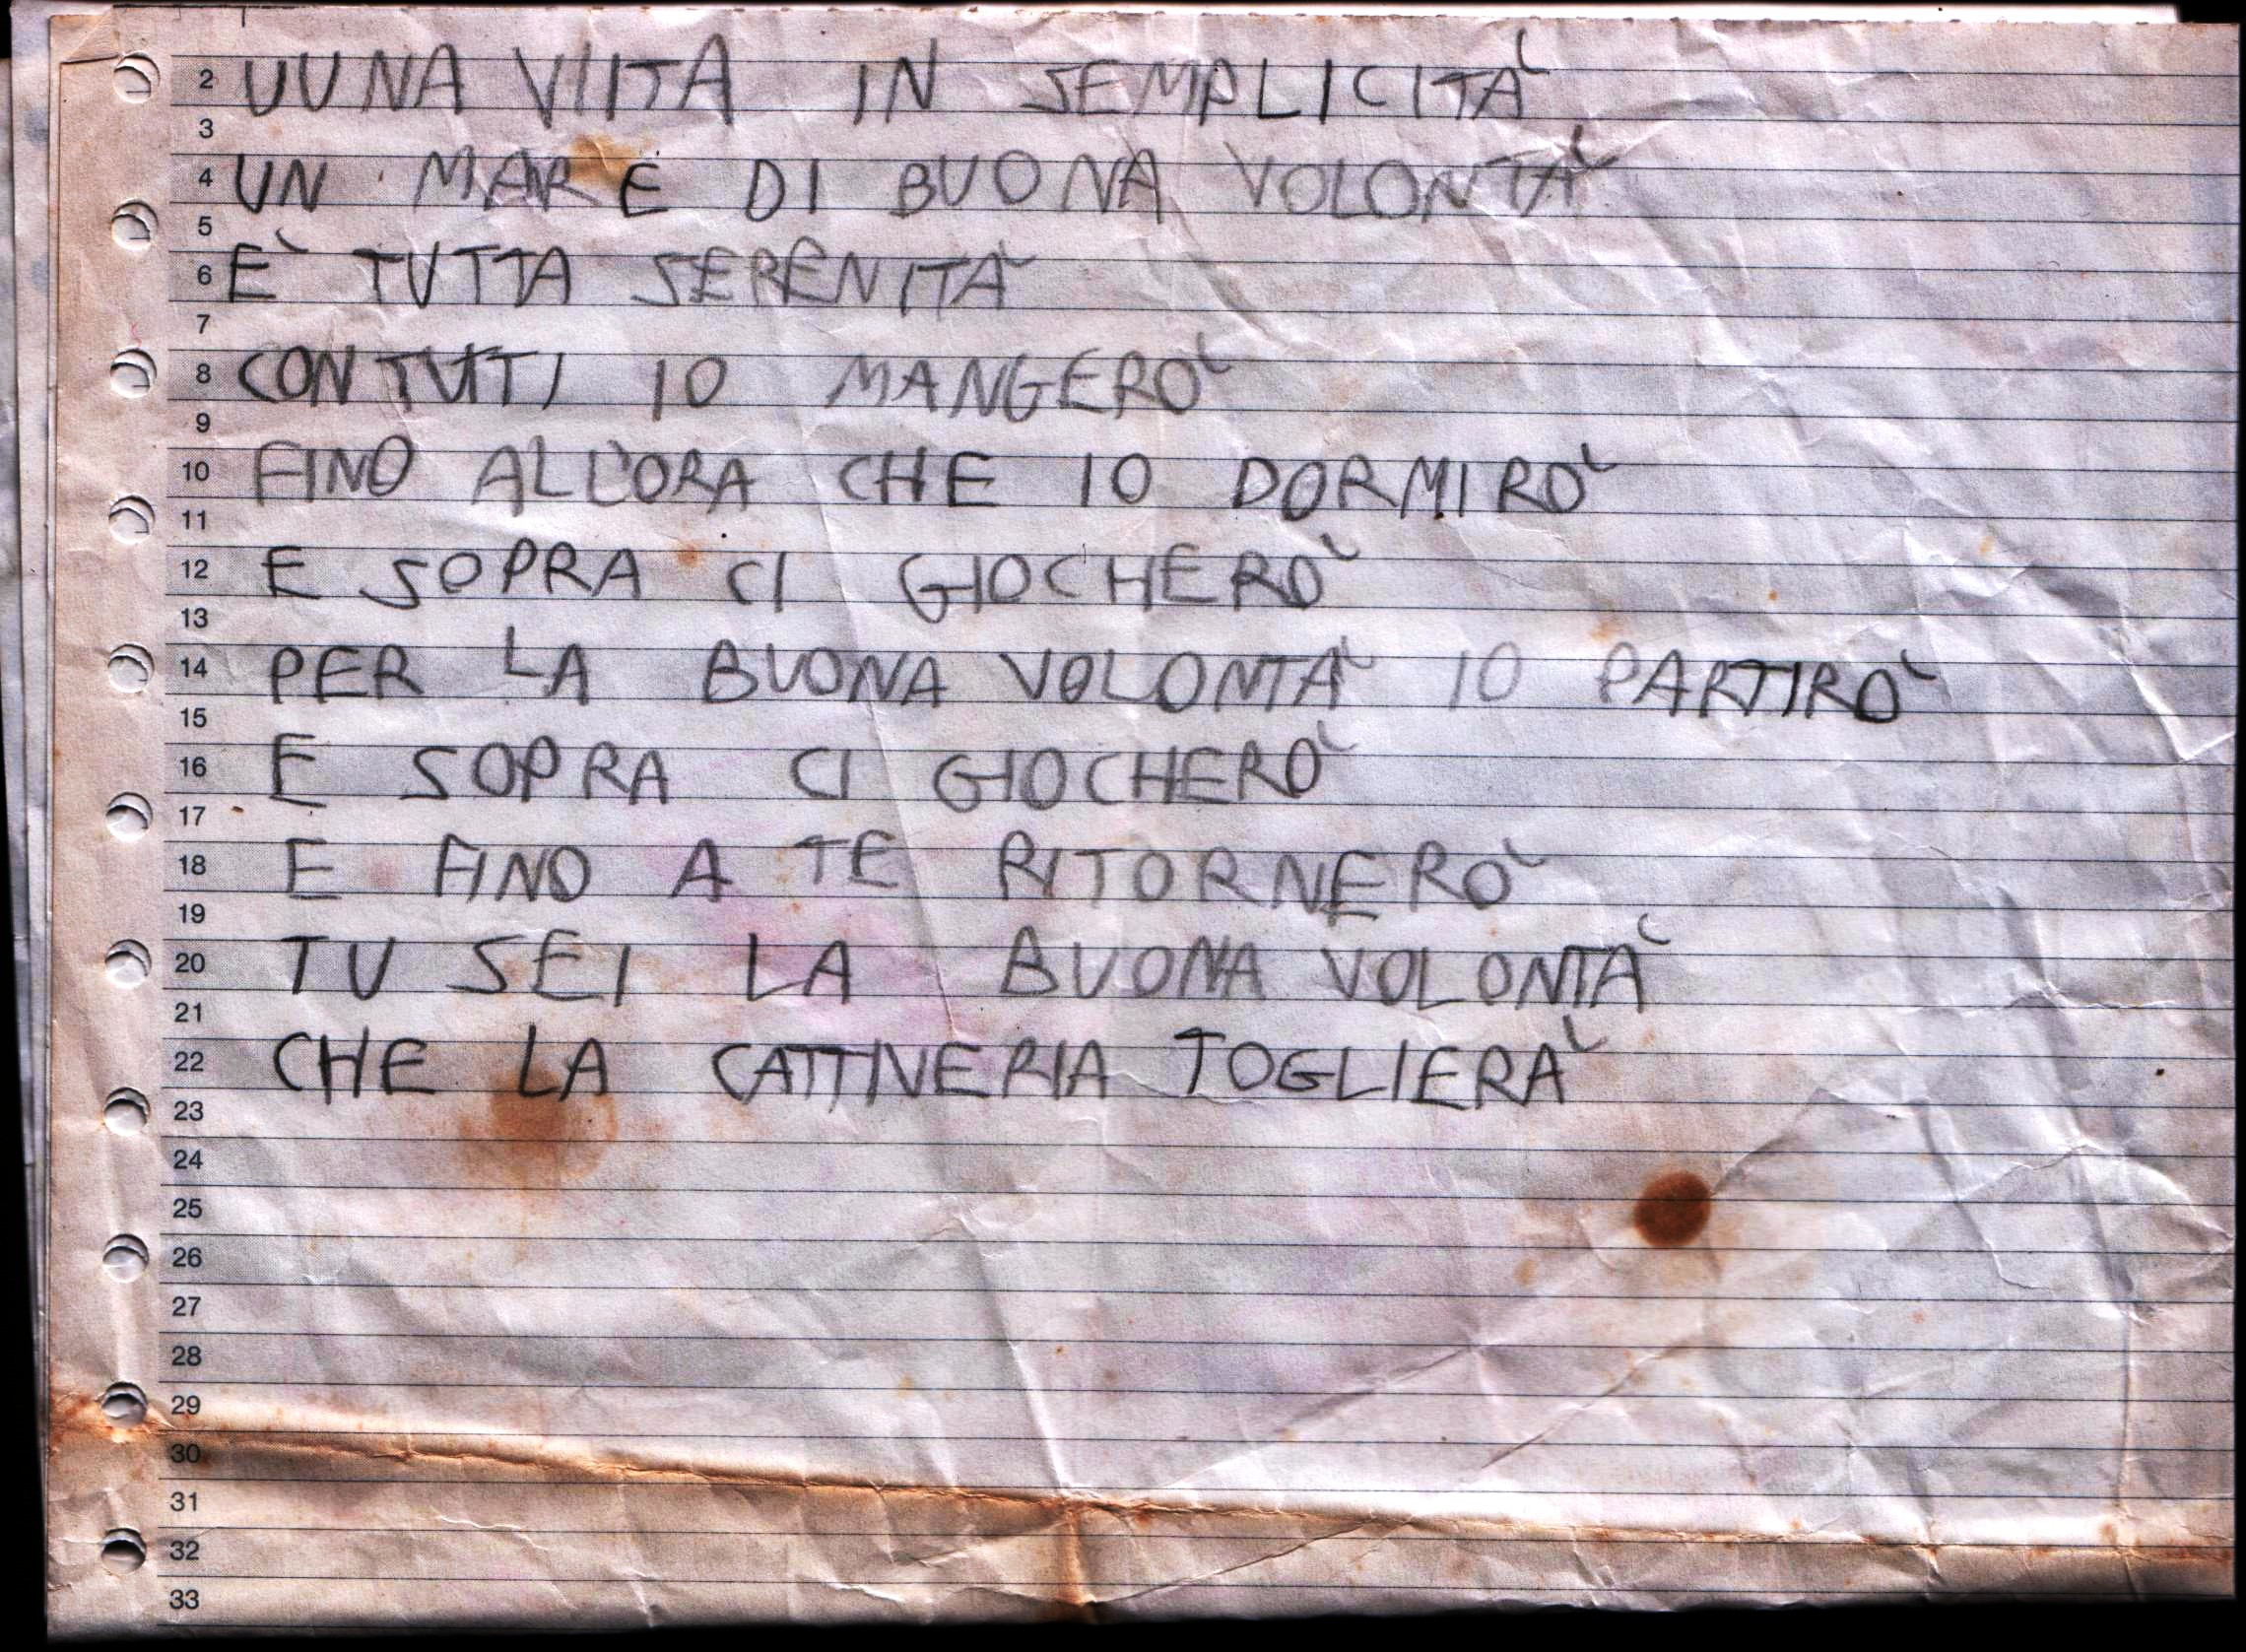 2 UUNA VIITA IN SEMPLICITÀ
3
4 UN MARE DI BUONA VOLONTÀ
5
6 È TUTTA SERENITÀ
7
8 CON TUTTI IO MANGERÒ
9
10 FINO ALL'ORA CHE IO DORMIRÒ
11
12 E SOPRA CI GIOCHERÒ
13
14 PER LA BUONA VOLONTÀ IO PARTIRÒ
15
16 E SOPRA CI GIOCHERÒ
17
18 E FINO A TE RITORNERÒ
19
20 TU SEI LA BUONA VOLONTÀ
21
22 CHE LA CATTIVERIA TOGLIERÀ
23
24
25
26
27
28
29
30
31
32
33